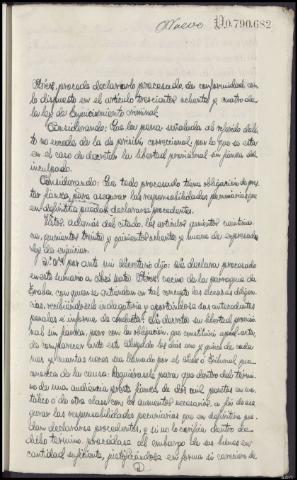 Nuevo D.0.790.682
Pérez, procede declararlo procesado, de conformidad con
lo dispuesto en el artículo trescientos ochenta y cuatro de
la ley de Enjuiciamiento criminal.
Considerando: Que la pena señalada al referido deli-
to no excede de la de prisión correccional, por lo que se está
en el caso de decretar la libertad provisional sin fianza del
inculpado.
Considerando: Que todo procesado tiene obligación de pres-
tar fianza para asegurar las responsabilidades pecuniarias que
en definitiva puedan declararse procedentes.
Vistos, además del citado, los artículos quinientos veintinue-
ve, quinientos treinta y quinientos ochenta y nueve de expresada
ley de enjuiciar.
S. Sª por ante mí Secretario dijo: se declara procesado
en este sumario a Pérez vecino de la parroquia de
con quien se entiendan en tal concepto las ulteriores diligen-
cias, recibiéndosele indagatoria y aportándose sus antecedentes
penales e informe de conducta. Se decreta su libertad provisio-
nal sin fianza, pero con la obligación, que constituirá apud acta,
de comparecer ante este Juzgado los días uno y quince de cada
mes y cuantas veces sea llamado por el mismo o Tribunal que
conozca de la causa. Requiérasele para que dentro del térmi-
no de una audiencia preste fianza de dos mil pesetas en me-
tálico o de otra clase con los aumentos necesarios, a fin de ase-
gurar las responsabilidades pecuniarias que en definitiva pue-
dan declararse procedentes, y si no lo verifica dentro de
dicho término, procédase al embargo de sus bienes en
cantidad suficiente, justificándose en forma si careciere de